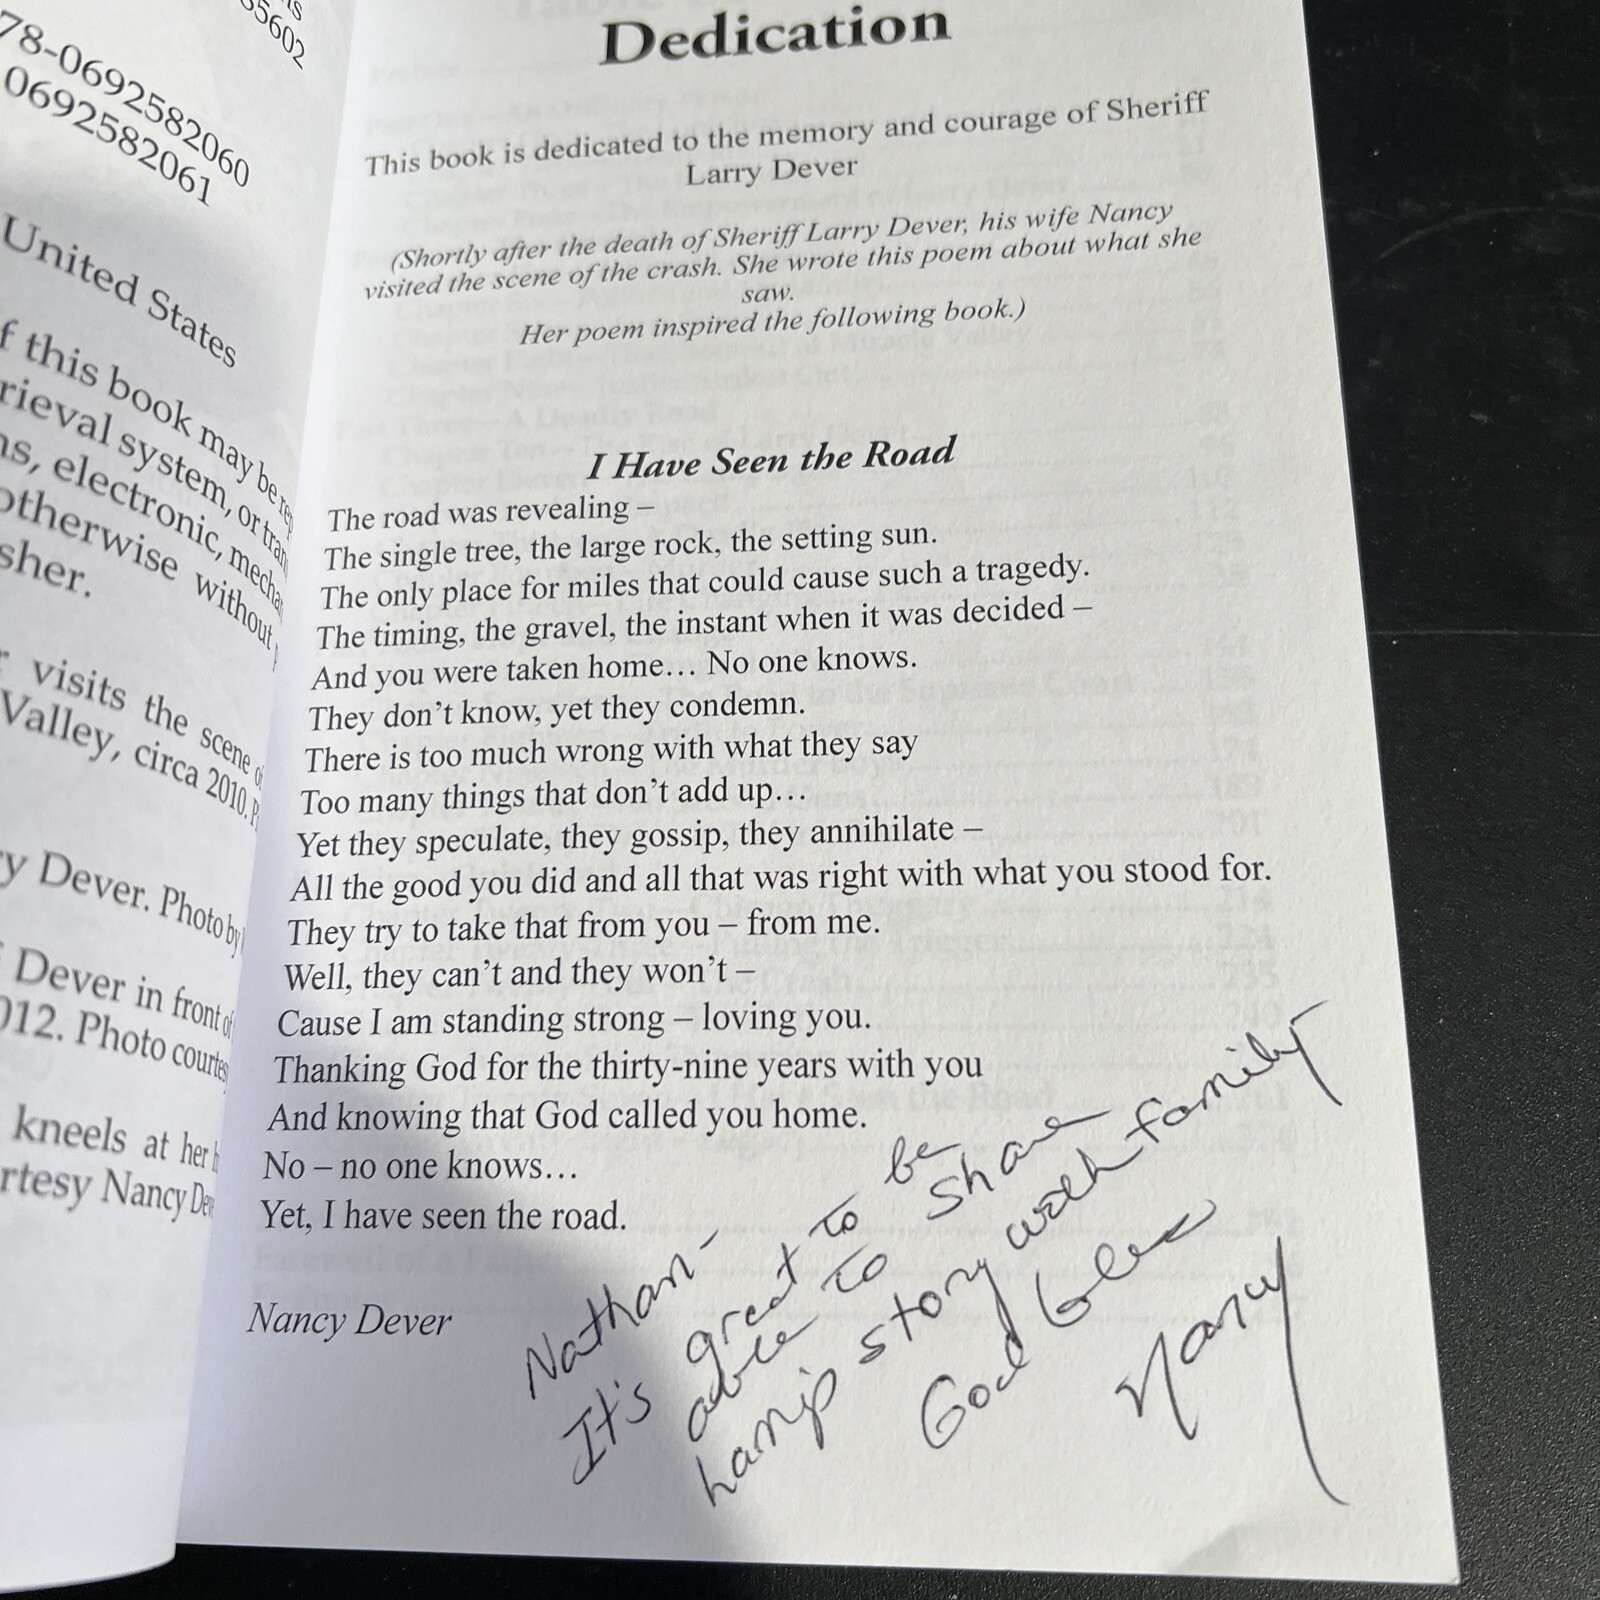 35602
78-0692582060
0692582061
United States
f this book may be rep
rieval system, or tran
ns, electronic, mecha
otherwise without
sher.
visits the scene
Valley, circa 2010.
y Dever. Photo by
Dever in front of
012. Photo courtes
kneels at her h
rtesy Nancy Deve
Dedication
This book is dedicated to the memory and courage of Sheriff
Larry Dever
(Shortly after the death of Sheriff Larry Dever, his wife Nancy
visited the scene of the crash. She wrote this poem about what she
saw.
Her poem inspired the following book.)
I Have Seen the Road
The road was revealing –
The single tree, the large rock, the setting sun.
The only place for miles that could cause such a tragedy.
The timing, the gravel, the instant when it was decided –
And you were taken home… No one knows.
They don't know, yet they condemn.
There is too much wrong with what they say
Too many things that don't add up…
Yet they speculate, they gossip, they annihilate –
All the good you did and all that was right with what you stood for.
They try to take that from you – from me.
Well, they can't and they won't –
Cause I am standing strong – loving you.
Thanking God for the thirty-nine years with you
And knowing that God called you home.
No – no one knows…
Yet, I have seen the road.
Nancy Dever
Nathan-
It's great to be
able to share
story with family
God bless
Nancy